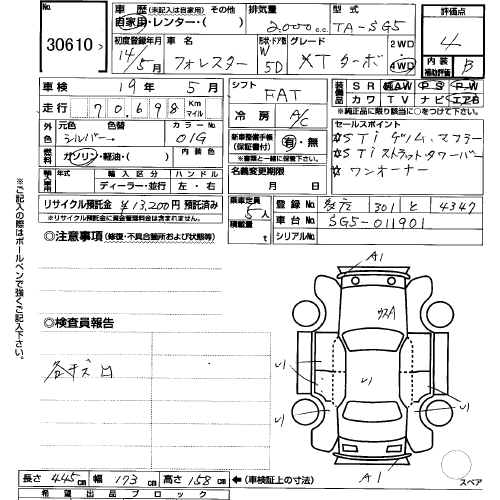 No. 30610
車歴 (未記入は自家用) その他
自家用・レンター・( )
排気量 2,000cc
型式 TA-SG5
評価点 4
初度登録年月 14/5月
車名 フォレスター
形状・ドア数 W 5D
グレード XTターボ
2WD
4WD
内装補助評価 B
車検 19年 5月
シフト FAT
装備品 SR AAW PS PW
カワ TV ナビ エアB
※純正品に限り該当に○をつけて下さい。
走行 70,698 Km マイル
冷房 A/C
セールスポイント
☆STiゲノムマフラー
☆STiストラットタワーバー
☆ワンオーナー
外色 元色 シルバー 色替
カラーNo 01G
内装色
新車整備手帳(保証書付) 有・無
※書類と一緒に保管。
燃料 ガソリン・軽油・( )
輸入車用 年式 輸入区分 ハンドル
ディーラー・並行 左・右
名義変更期限
月 日
リサイクル預託金 ¥13,200円 預託済み
※リサイクル預託金に資金管理料金は含まれません。
乗車定員 5人
積載量 t
登録No. 301 と 4347
車台No. SG5-011901
シリアルNo.
◎注意事項 (修復・不具合箇所および状態等)
◎検査員報告
各キズ凹
※ご記入の際はボールペンで強くご記入下さい。
A1
ウスA
A1
スペア
長さ 445cm 幅 173cm 高さ 158cm ←(車検証上の寸法)
希望出品ブロック